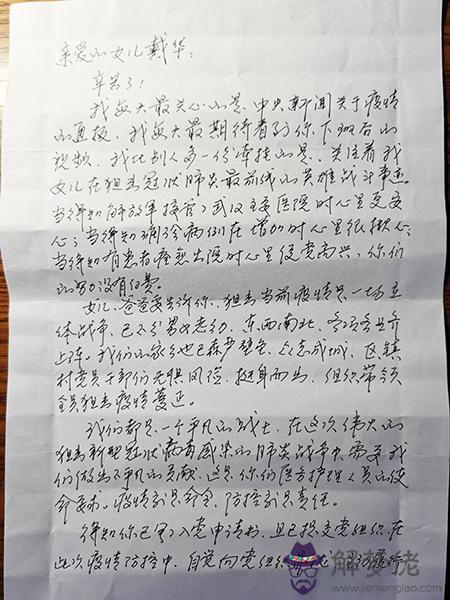 亲爱的女儿戴华：
辛苦了！
我每天最关心的是，中央新闻关于疫情
的通报，我每天最期待看到你下班后的
视频，我比别人多一份牵挂的是，关注着我
女儿在狙击冠状肺炎最前线的英雄战斗事迹。
当得知解放军接管了武汉主要医院时心里是安
心；当得知确诊病例在增加时心里很揪心；
当得知有患者痊愈出院时心里便觉高兴，你们
的努力没有白费。
女儿，爸爸要告诉你，狙击当前疫情是一场立
体战争，已不分男女老幼，东西南北，各项各业齐
上阵。我们的家乡也已森严壁垒，众志成城，区镇
村党员干部们无惧风险，挺身而出，组织带领
全员狙击疫情蔓延。
我们都是一个平凡的战士，在这次伟大的
狙击新型冠状病毒感染的肺炎战争中，需要我
们做出不平凡的贡献，这是你们医方护理人员的使
命要求。疫情就是命令，防控就是责任。
得知你已写了入党申请书，且已提交党组织，在
此次疫情防控中，自觉向党组织
解梦佬
www.jiemenglao.com